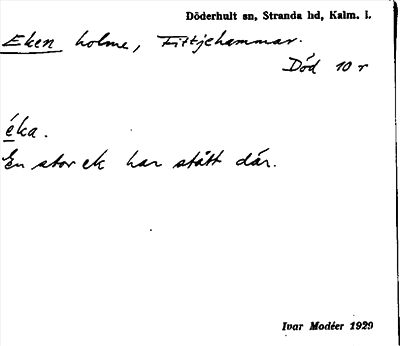 Döderhult sn, Stranda hd, Kalm. l.
Eken holme, Fittjehammar.
Död 10 r
éka.
En stor ek har stått där.
Ivar Modéer 1929